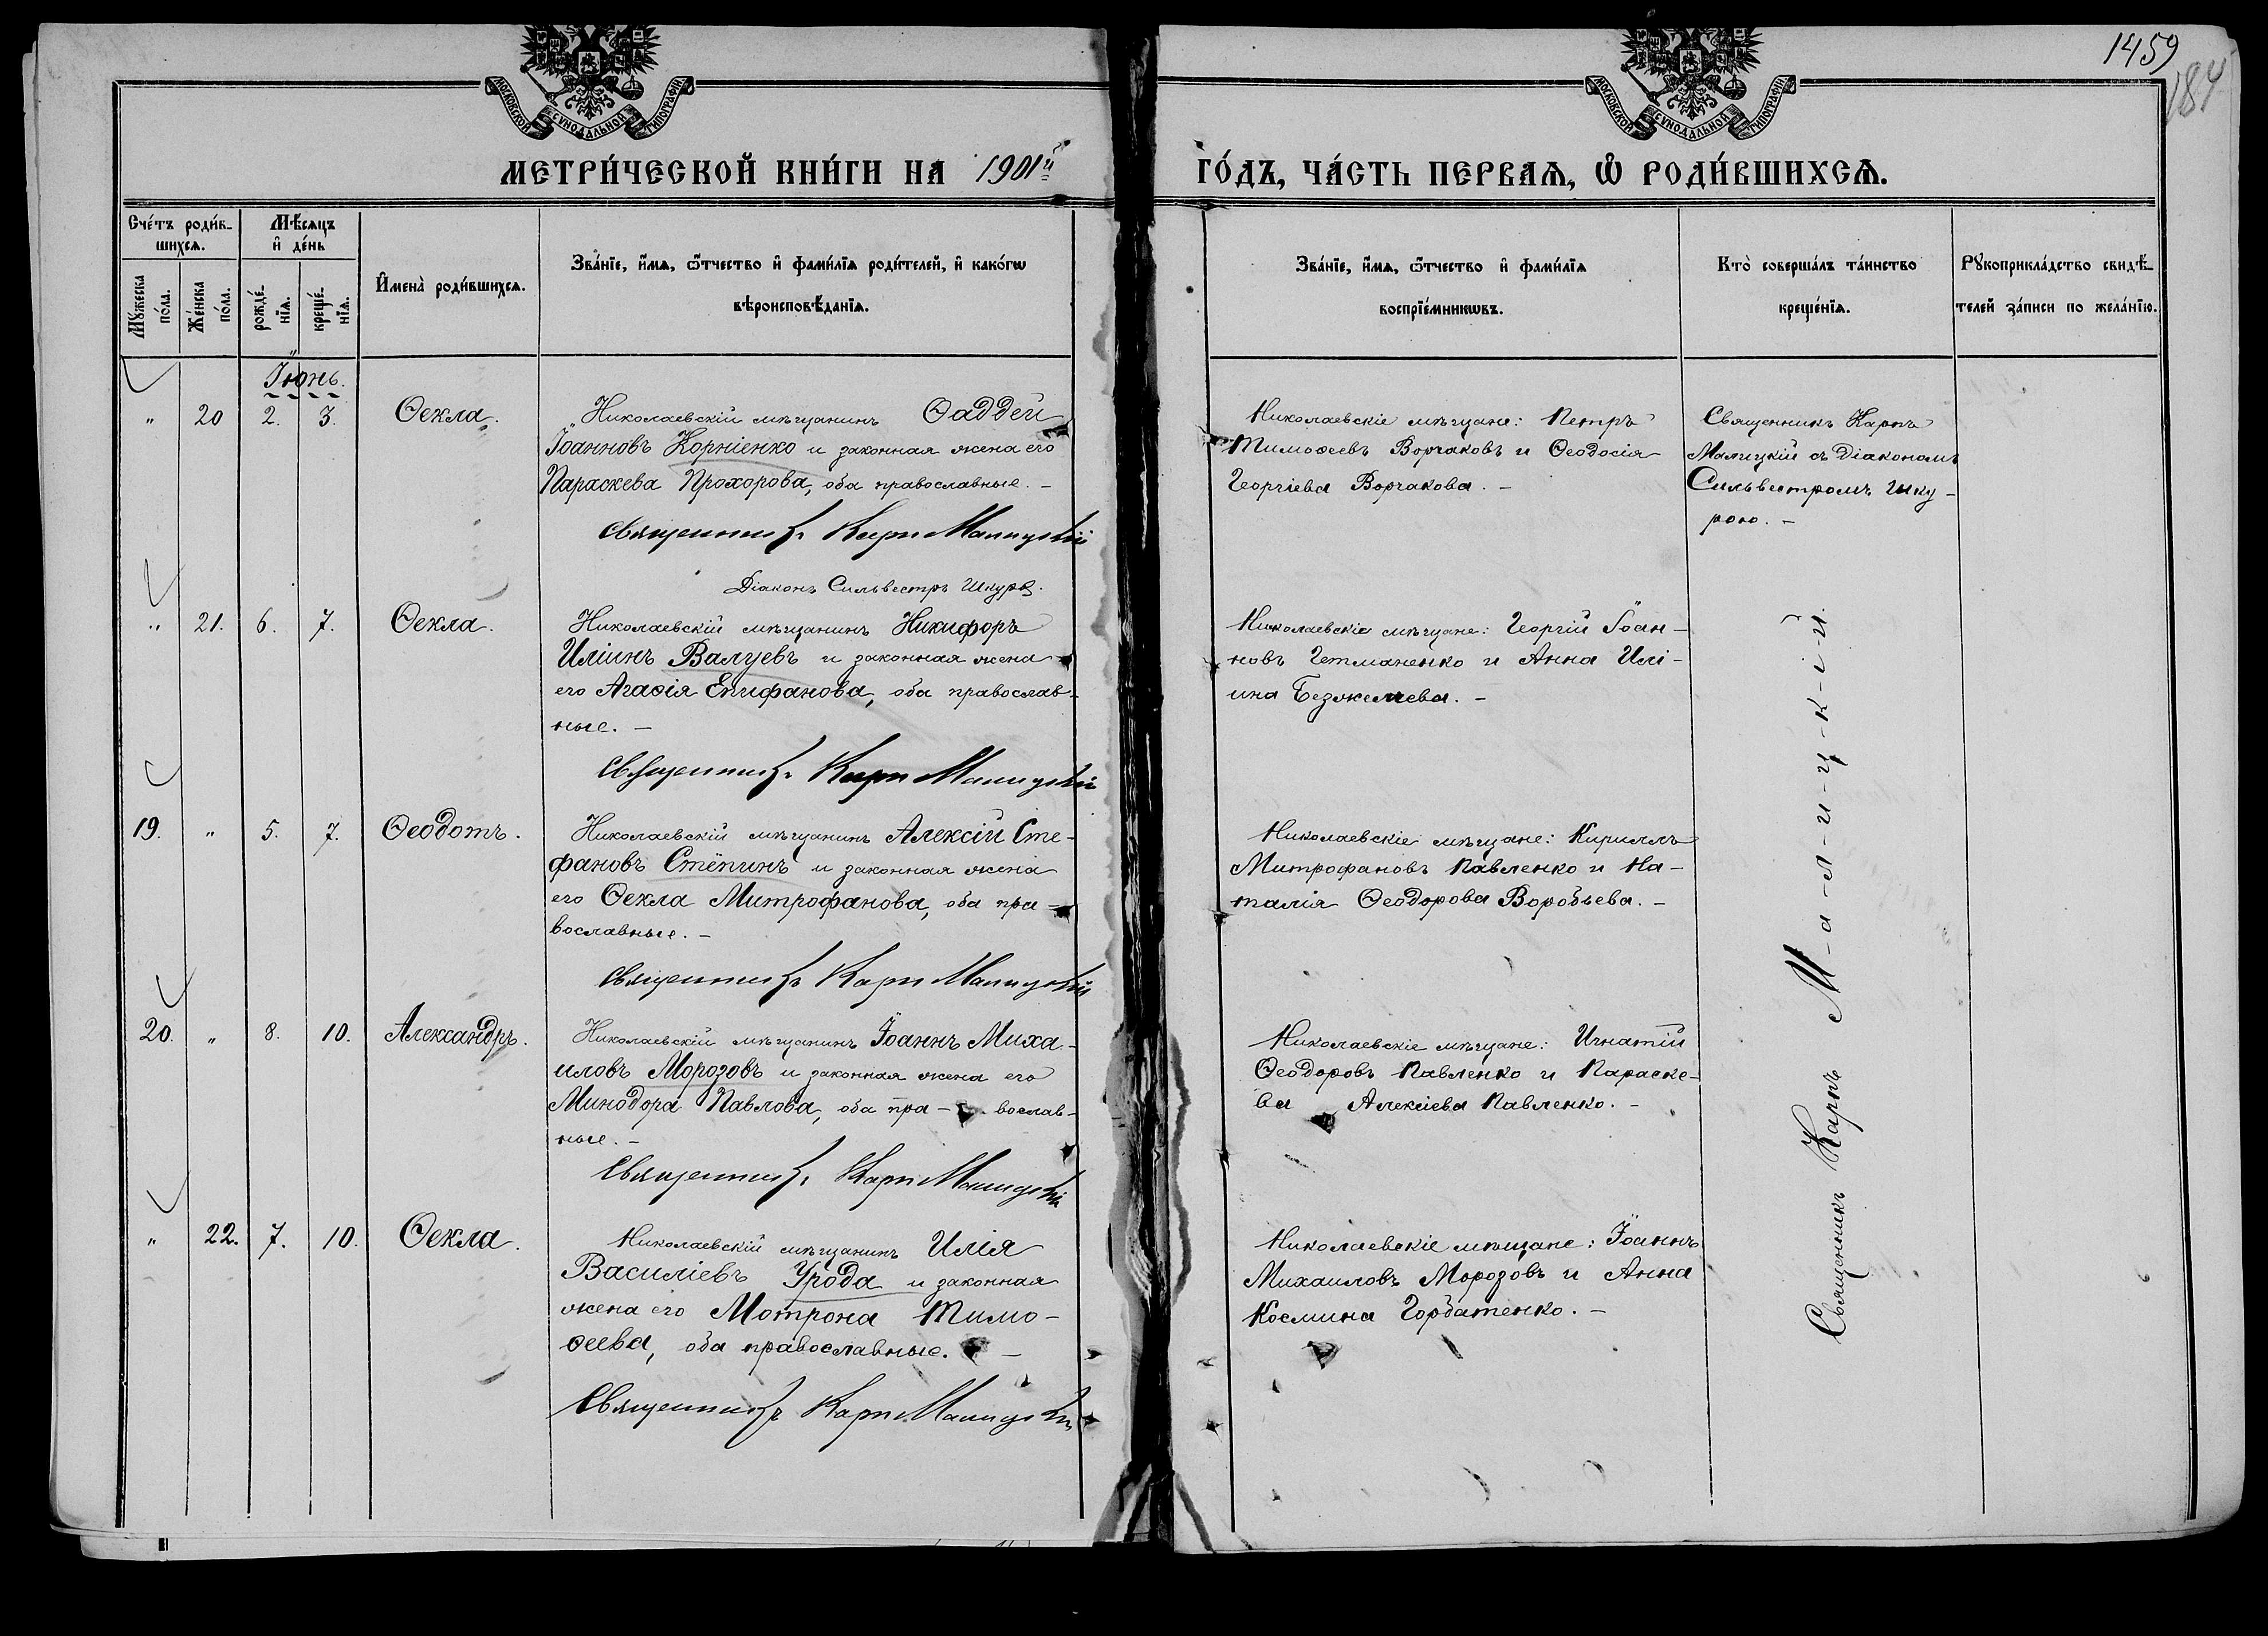 1459
184
МОСКОВСКОЙ СѴНОДАЛЬНОЙ ТИПОГРАФІИ
МОСКОВСКОЙ СѴНОДАЛЬНОЙ ТИПОГРАФІИ
МЕТРИ́ЧЕСКОЙ КНИ́ГИ НА 1901й ГО́ДЪ, ЧА́СТЬ ПЕРВАѦ, Ѽ РОДИ́ВШИХСѦ.
Сче́тъ роди́в-
шихсѧ.
Мѣсѧцъ
и҆ де́нь
Мꙋ́жеска
по́ла.
Же́нска
по́ла.
рожде́-
нїѧ.
креще́-
нїѧ.
И҆мена̀ роди́вшихсѧ.
Зва́нїе, и҆́мѧ, ѻ҆́тчество и҆ фами́лїѧ роди́телей, и҆ како́гѡ
вѣроисповѣ́данїѧ.
Зва́нїе, и҆́мѧ, ѻ҆́тчество и҆ фами́лїѧ
воспрїе́мникѡвъ.
Кто̀ соверша́лъ та́инство
креще́нїѧ.
Рꙋкоприкла́дство свидѣ́-
телей за́писи по жела́нїю.
Іюнь.
" 20 2. 3. Ѳекла.
Николаевскій мѣщанинъ Ѳаддей
Іоанновъ Корніенко и законная жена его
Параскева Прохорова, оба православные. –
Священникъ Карпъ Малицкій
Діаконъ Сильвестръ Шкура.
Николаевскіе мѣщане: Петръ
Тимоѳеевъ Ворчаковъ и Ѳеодосія
Георгіева Ворчакова. –
Священникъ Карпъ
Малицкій съ Діакономъ
Сильвестромъ Шку-
рою. –
" 21. 6. 7. Ѳекла.
Николаевскій мѣщанинъ Никифоръ
Иліинъ Валуевъ и законная жена
его Агаѳія Епифанова, оба православ-
ные. –
Священникъ Карпъ Малицкій
Николаевскіе мѣщане: Георгій Іоан-
новъ Гетманенко и Анна Илі-
ина Безжелиева. –
19. " 5. 7. Ѳеодотъ.
Николаевскій мѣщанинъ Алексій Сте-
фановъ Стёпинъ и законная жена
его Ѳекла Митрофанова, оба пра-
вославные. –
Священникъ Карпъ Малицкій
Николаевскіе мѣщане: Кириллъ
Митрофановъ Павленко и На-
талія Ѳеодорова Воробьева. –
20. " 8. 10. Александръ.
Николаевскій мѣщанинъ Іоаннъ Миха-
иловъ Морозовъ и законная жена его
Минодора Павлова, оба пра- вослав-
ные. –
Священникъ Карпъ Малицкій
Николаевскіе мѣщане: Игнатій
Ѳеодоровъ Павленко и Параске-
ва Алексіева Павленко. –
" 22. 7. 10. Ѳекла.
Николаевскій мѣщанинъ Илія
Василіевъ Урода и законная
жена его Мотрона Тимо-
ѳеева, оба православные. –
Священникъ Карпъ Малицкій
Николаевскіе мѣщане: Іоаннъ
Михаиловъ Морозовъ и Анна
Космина Горбатенко. –
Священникъ Карпъ М-а-л-и-ц-к-і-й.